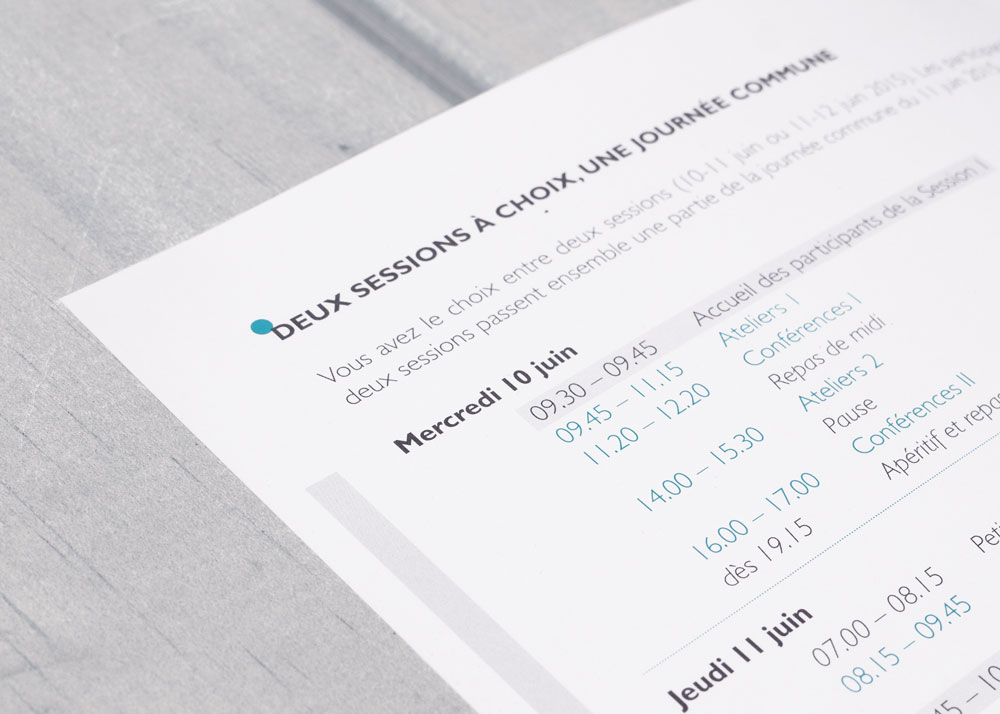 DEUX SESSIONS À CHOIX, UNE JOURNÉE COMMUNE
Vous avez le choix entre deux sessions (10-11 juin ou 11-12 juin 2015). Les
deux sessions passent ensemble une partie de la journée commune du 11 juin
Mercredi 10 juin
09.30 – 09.45 Accueil des participants de la Session I
09.45 – 11.15 Ateliers 1
11.20 – 12.20 Conférences I
Repas de midi
14.00 – 15.30 Ateliers 2
Pause
16.00 – 17.00 Conférences II
dès 19.15 Apéritif et
Jeudi 11 juin
07.00 – 08.15
08.15 – 09.45